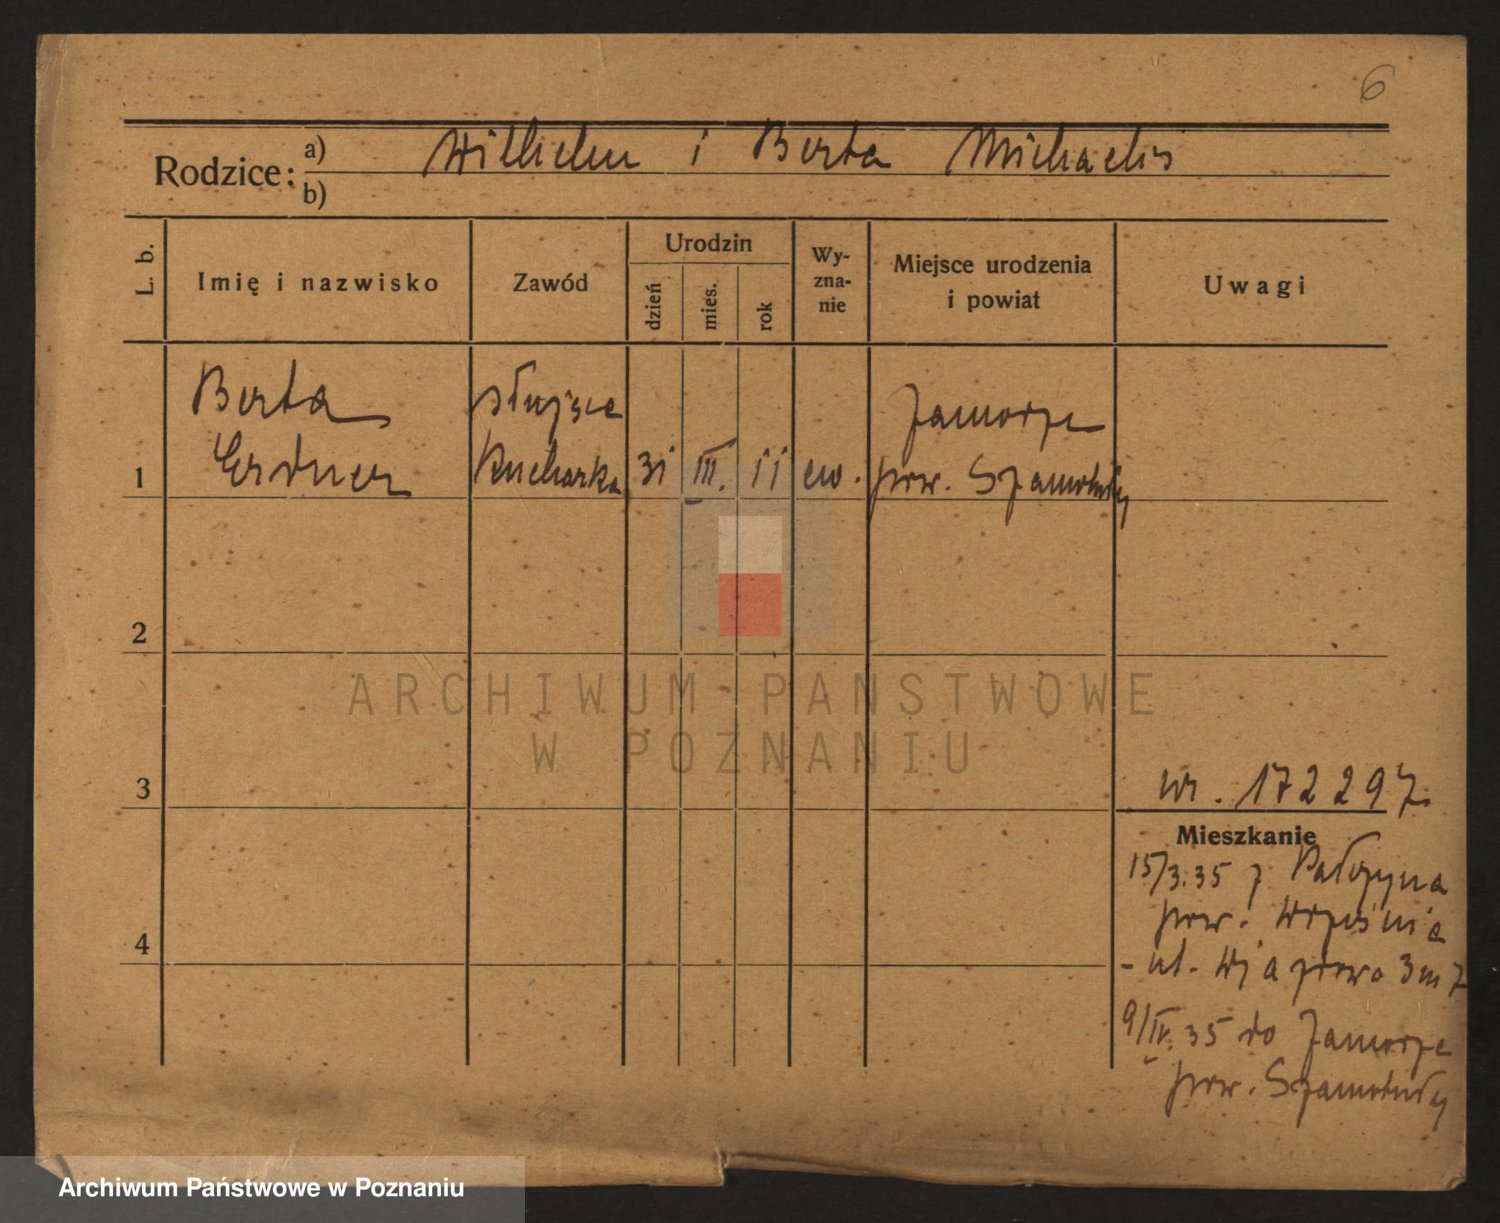 6
Rodzice: a) Wilhelm i Berta Michaelis
b)
L. b.
Imię i nazwisko
Zawód
Urodzin
dzień
mies.
rok
Wy-
zna-
nie
Miejsce urodzenia
i powiat
Uwagi
1
Berta
Erdner
służąca
Kucharka
31
III.
11
ew.
Zamorze
pow. Szamotuły
2
3
4
nr. 172297
Mieszkanie
15/3.35 z
pow. Września
- ul. 3 m 7
9/IV.35 do Zamorze
pow. Szamotuły
ARCHIWUM PAŃSTWOWE
W POZNANIU
Archiwum Państwowe w Poznaniu